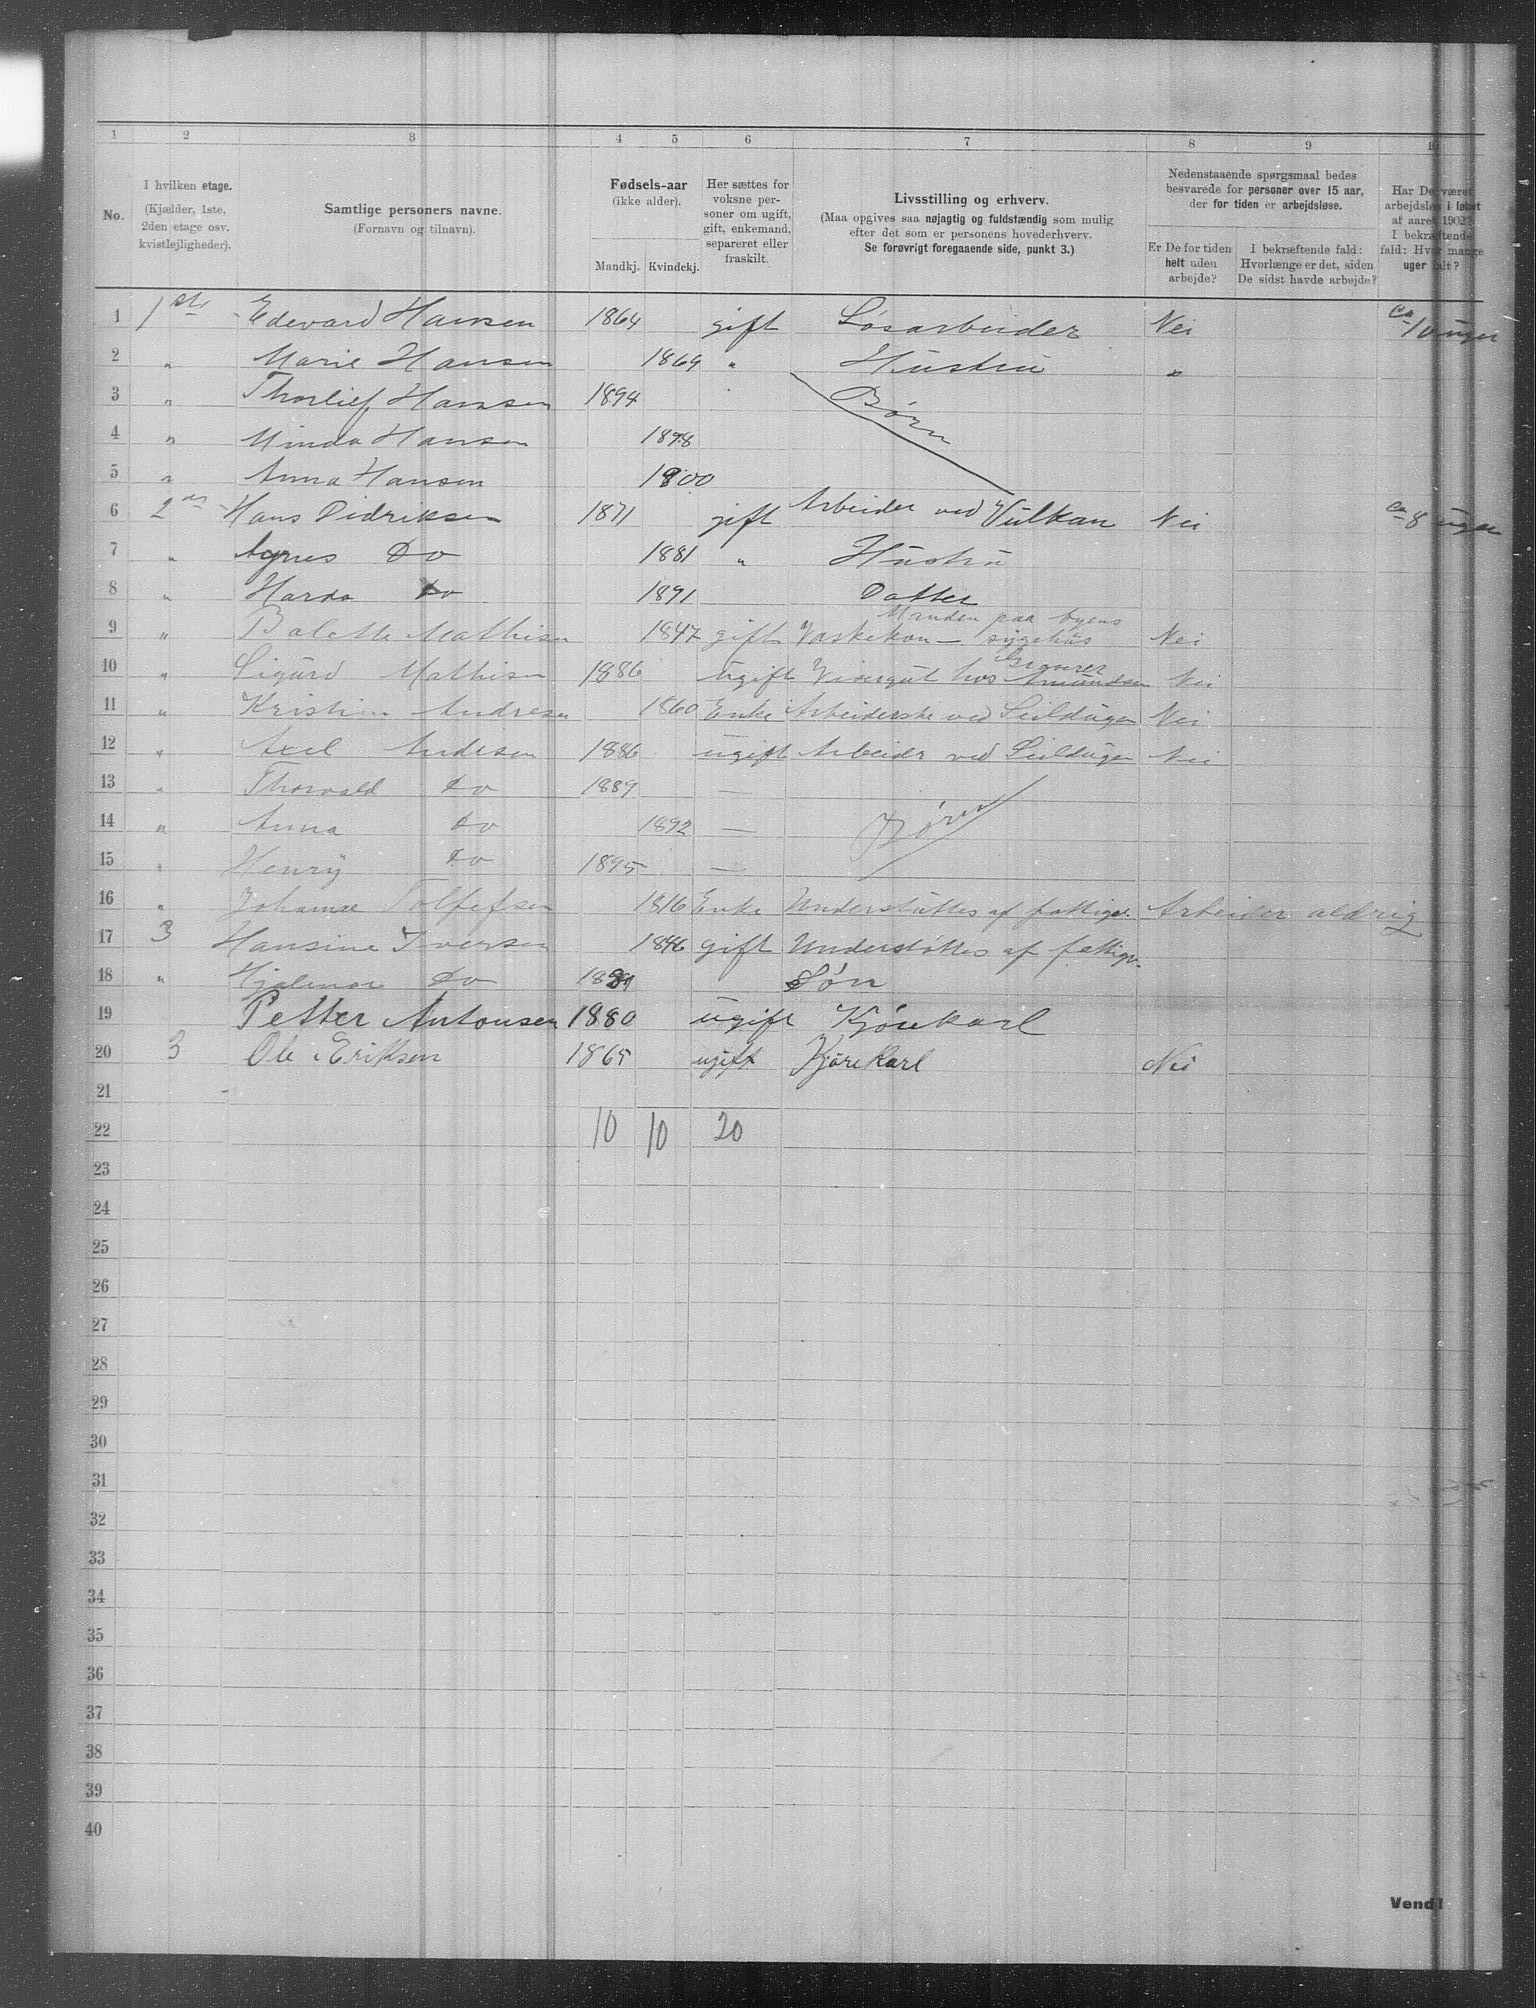 1 2 3 4 5 6 7 8 9 10
No.
I hvilken etage.
(Kjælder, 1ste,
2den etage osv.
kvistlejligheder).
Samtlige personers navne.
(Fornavn og tilnavn).
Fødsels-aar
(ikke alder).
Mandkj. Kvindekj.
Her sættes for
voksne per-
soner om ugift,
gift, enkemand,
separeret eller
fraskilt.
Livsstilling og erhverv.
(Maa opgives saa nøjagtig og fuldstændig som mulig
efter det som er personens hovederhverv.
Se forøvrigt foregaaende side, punkt 3.)
Nedenstaaende spørgsmaal bedes
besvarede for personer over 15 aar,
der for tiden er arbejdsløse.
Er De for tiden
helt uden
arbejde?
I bekræftende fald:
Hvorlænge er det, siden
De sidst havde arbejde?
Har De været
arbejdsløs i løbet
af aaret 1902?
I bekræftende
fald: Hvor mange
uger ialt?
1 1ste Edevard Hansen 1864 gift Løsarbeider Nei ca 10 uger
2 " Marie Hansen 1869 " Hustru "
3 " Thorlief Hansen 1894 Børn
4 " Minda Hansen 1898
5 " Anna Hansen 1900
6 2den Hans Didriksen 1871 gift Arbeider ved Vulkan Nei ca 8 uger
7 " Agnes Do 1881 " Hustru
8 " Harda Do 1891 Datter
Manden paa byens
9 " Bolette Mathisen 1847 gift Vaskekon— sygehus Nei
Graverer
10 " Sigurd Mathisen 1886 ugift Visergut hos Amundsen Nei
11 " Kristine Andresen 1860 Enke Arbeiderske ved Seildugen Nei
12 " Axel Andresen 1886 ugift Arbeider ved Seildugen Nei
13 " Thorvald Do 1889 —
14 " Anna Do 1892 — Børn
15 " Henry Do 1895 —
16 " Johanne Tollefsen 1816 Enke Understøttes af fattigv. Arbeider aldrig
17 3 Hansine Iversen 1846 gift Understøttes af fattigv.
18 " Hjalmar Do Søn
19 Petter Antonsen 1880 ugift Kjørekarl
20 3 Ole Eriksen 1865 ugift Kjørekarl Nei
21
22 10 10 20
23
24
25
26
27
28
29
30
31
32
33
34
35
36
37
38
39
40
Vend!